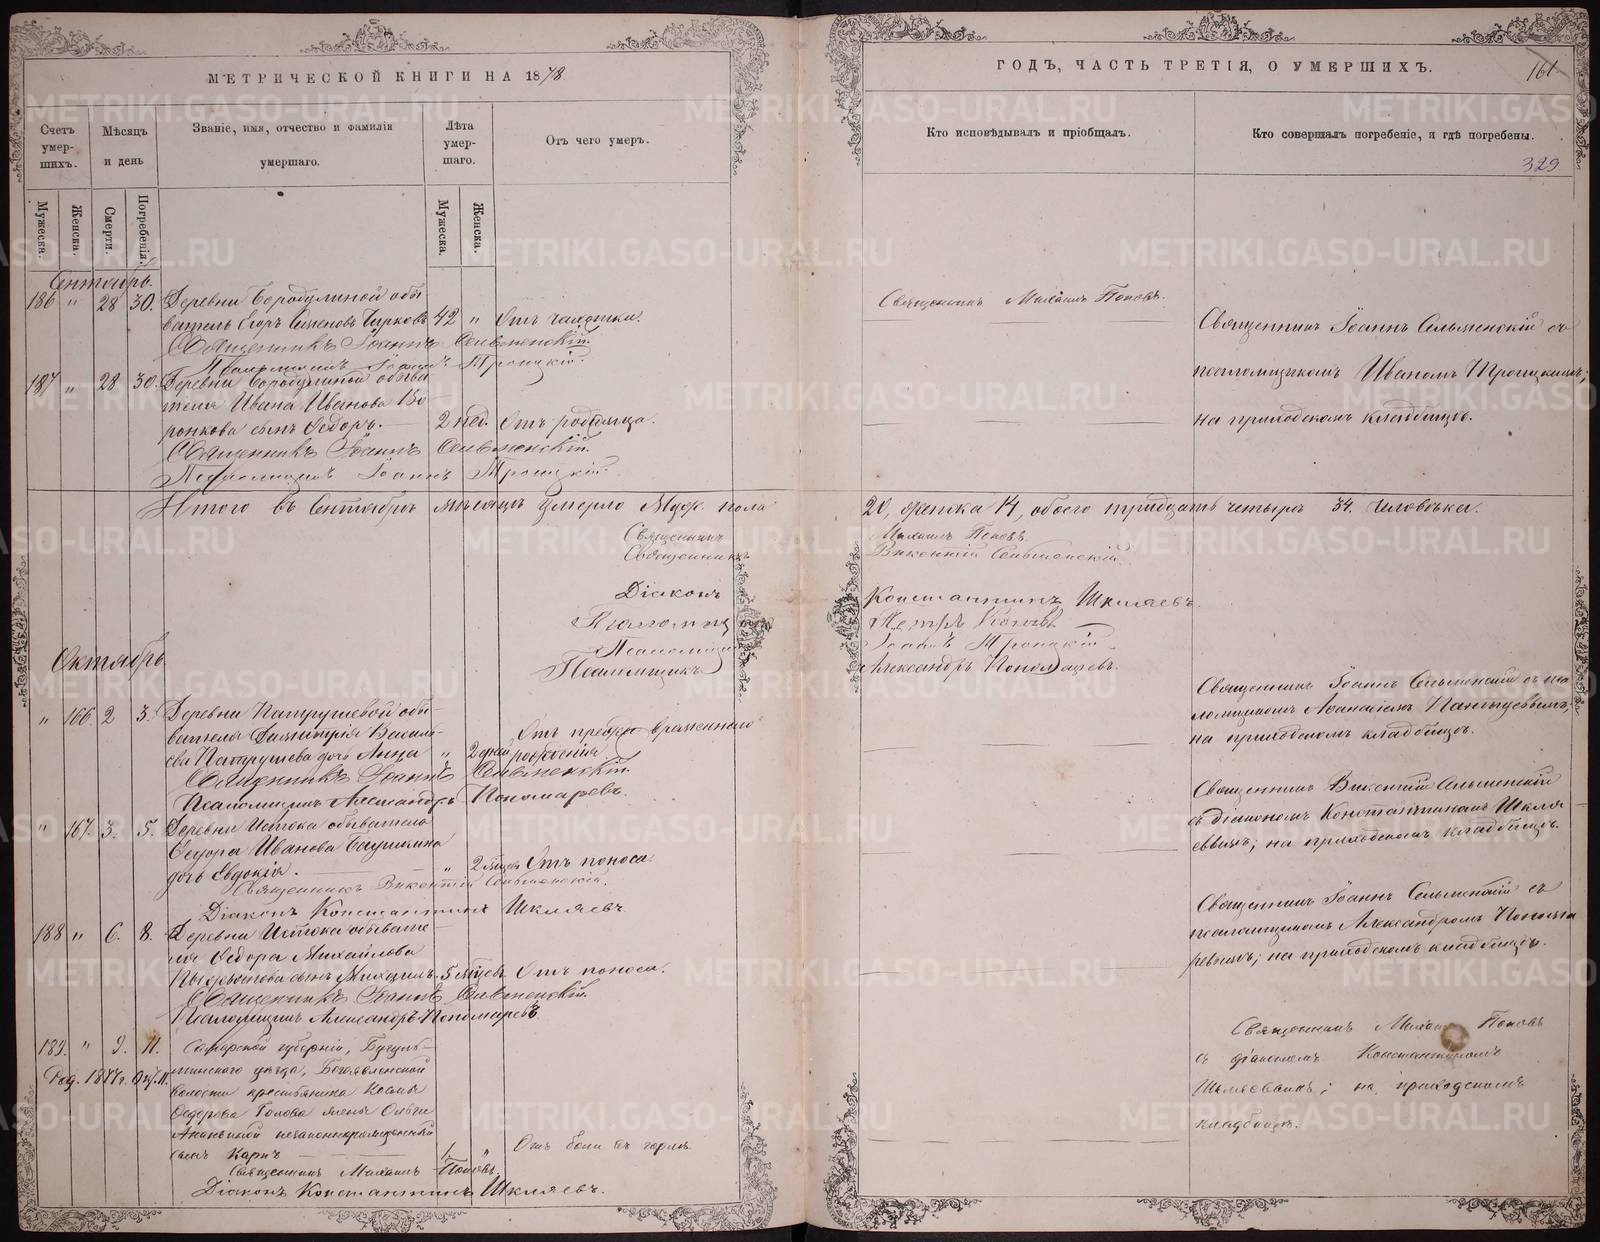 МЕТРИЧЕСКОЙ КНИГИ НА 1878
ГОДЪ, ЧАСТЬ ТРЕТІЯ, О УМЕРШИХЪ.
161
Счетъ умер-шихъ.
Мѣсяцъ и день
Званіе, имя, отчество и фамилія умершаго.
Лѣта умер-шаго.
Отъ чего умеръ.
Кто исповѣдывалъ и пріобщалъ.
Кто совершалъ погребеніе, и гдѣ погребены.
329
Мужеска.
Женска.
Смерти.
Погребенія.
Мужеска.
Женска.
Сентябрь.
186 " 28 30. Деревни Бородулиной обы
ватель Егоръ Семеновъ Чирковъ 42 " Отъ чахотки.
Священникъ Іоаннъ Сельменскій.
Псаломщикъ Іоаннъ Троицкій.
Священникъ Михаилъ Поповъ.
Священникъ Іоаннъ Сельменскій съ
псаломщикомъ Иваномъ Троицкимъ;
на приходскомъ кладбищѣ.
187 " 28 30. Деревни Бородулиной обыва
теля Ивана Иванова Во
ронкова сынъ Ѳедоръ. 2 нед. Отъ родимца.
Священникъ Іоаннъ Сельменскій.
Псаломщикъ Іоаннъ Троицкій.
Итого въ Сентябрѣ мѣсяцѣ умерло Муж. пола
20, женска 14, обоего тридцать четыре 34. Человѣка.
Священникъ Михаилъ Поповъ
Священникъ Викентій Сельменскій.
Діаконъ Константинъ Шкляевъ.
Псаломщ Петръ
Псаломщик Іоаннъ Троицкій.
Псаломщикъ Александръ Пономаревъ.
Октябрь
" 166 2 3. Деревни Патрушевой обы-
вателя Димитрія Василь-
ева Патрушева дочь Анна " 2 дней Отъ преждевременнаго
рожденія
Священникъ Іоаннъ Сельменскій.
Псаломщикъ Александръ Пономаревъ.
Священникъ Іоаннъ Сельменскій съ пса
ломщикомъ
на приходскомъ кладбищѣ.
" 167. 3. 5. Деревни Истока обывателя
Ѳедора Иванова
дочь Евдокія. " 2 Отъ поноса.
Священникъ Викентій Сельменскій.
Діаконъ Константинъ Шкляевъ.
Священникъ Викентій Сельменскій
съ діакономъ Константиномъ Шкля
евымъ; на приходскомъ кладбищѣ.
188 " 6. 8. Деревни Истока обывате-
ля Ѳедора Михайлова
сынъ Михаилъ. 5 Отъ поноса.
Священникъ Іоаннъ Сельменскій.
Псаломщикъ Александръ Пономаревъ
Священникъ Іоаннъ Сельменскій съ
псаломщикомъ Александромъ Понома
ревымъ; на приходскомъ кладбищѣ.
189. " 9. 11. Самарской губерніи, Бугуль-
минскаго уѣзда, Богоявленской
Род. 1877 г. Окт. 11.
волости крестьянина
Ѳедорова жены Ольги
незаконнорожденный
сынъ Карпъ 1 " Отъ боли въ горлѣ.
Священникъ Михаилъ Поповъ.
Діаконъ Константинъ Шкляевъ.
Священникъ Михаилъ Поповъ
съ діакономъ Константиномъ
Шкляевымъ; на приходскомъ
кладбищѣ.
METRIKI.GASO-URAL.RU